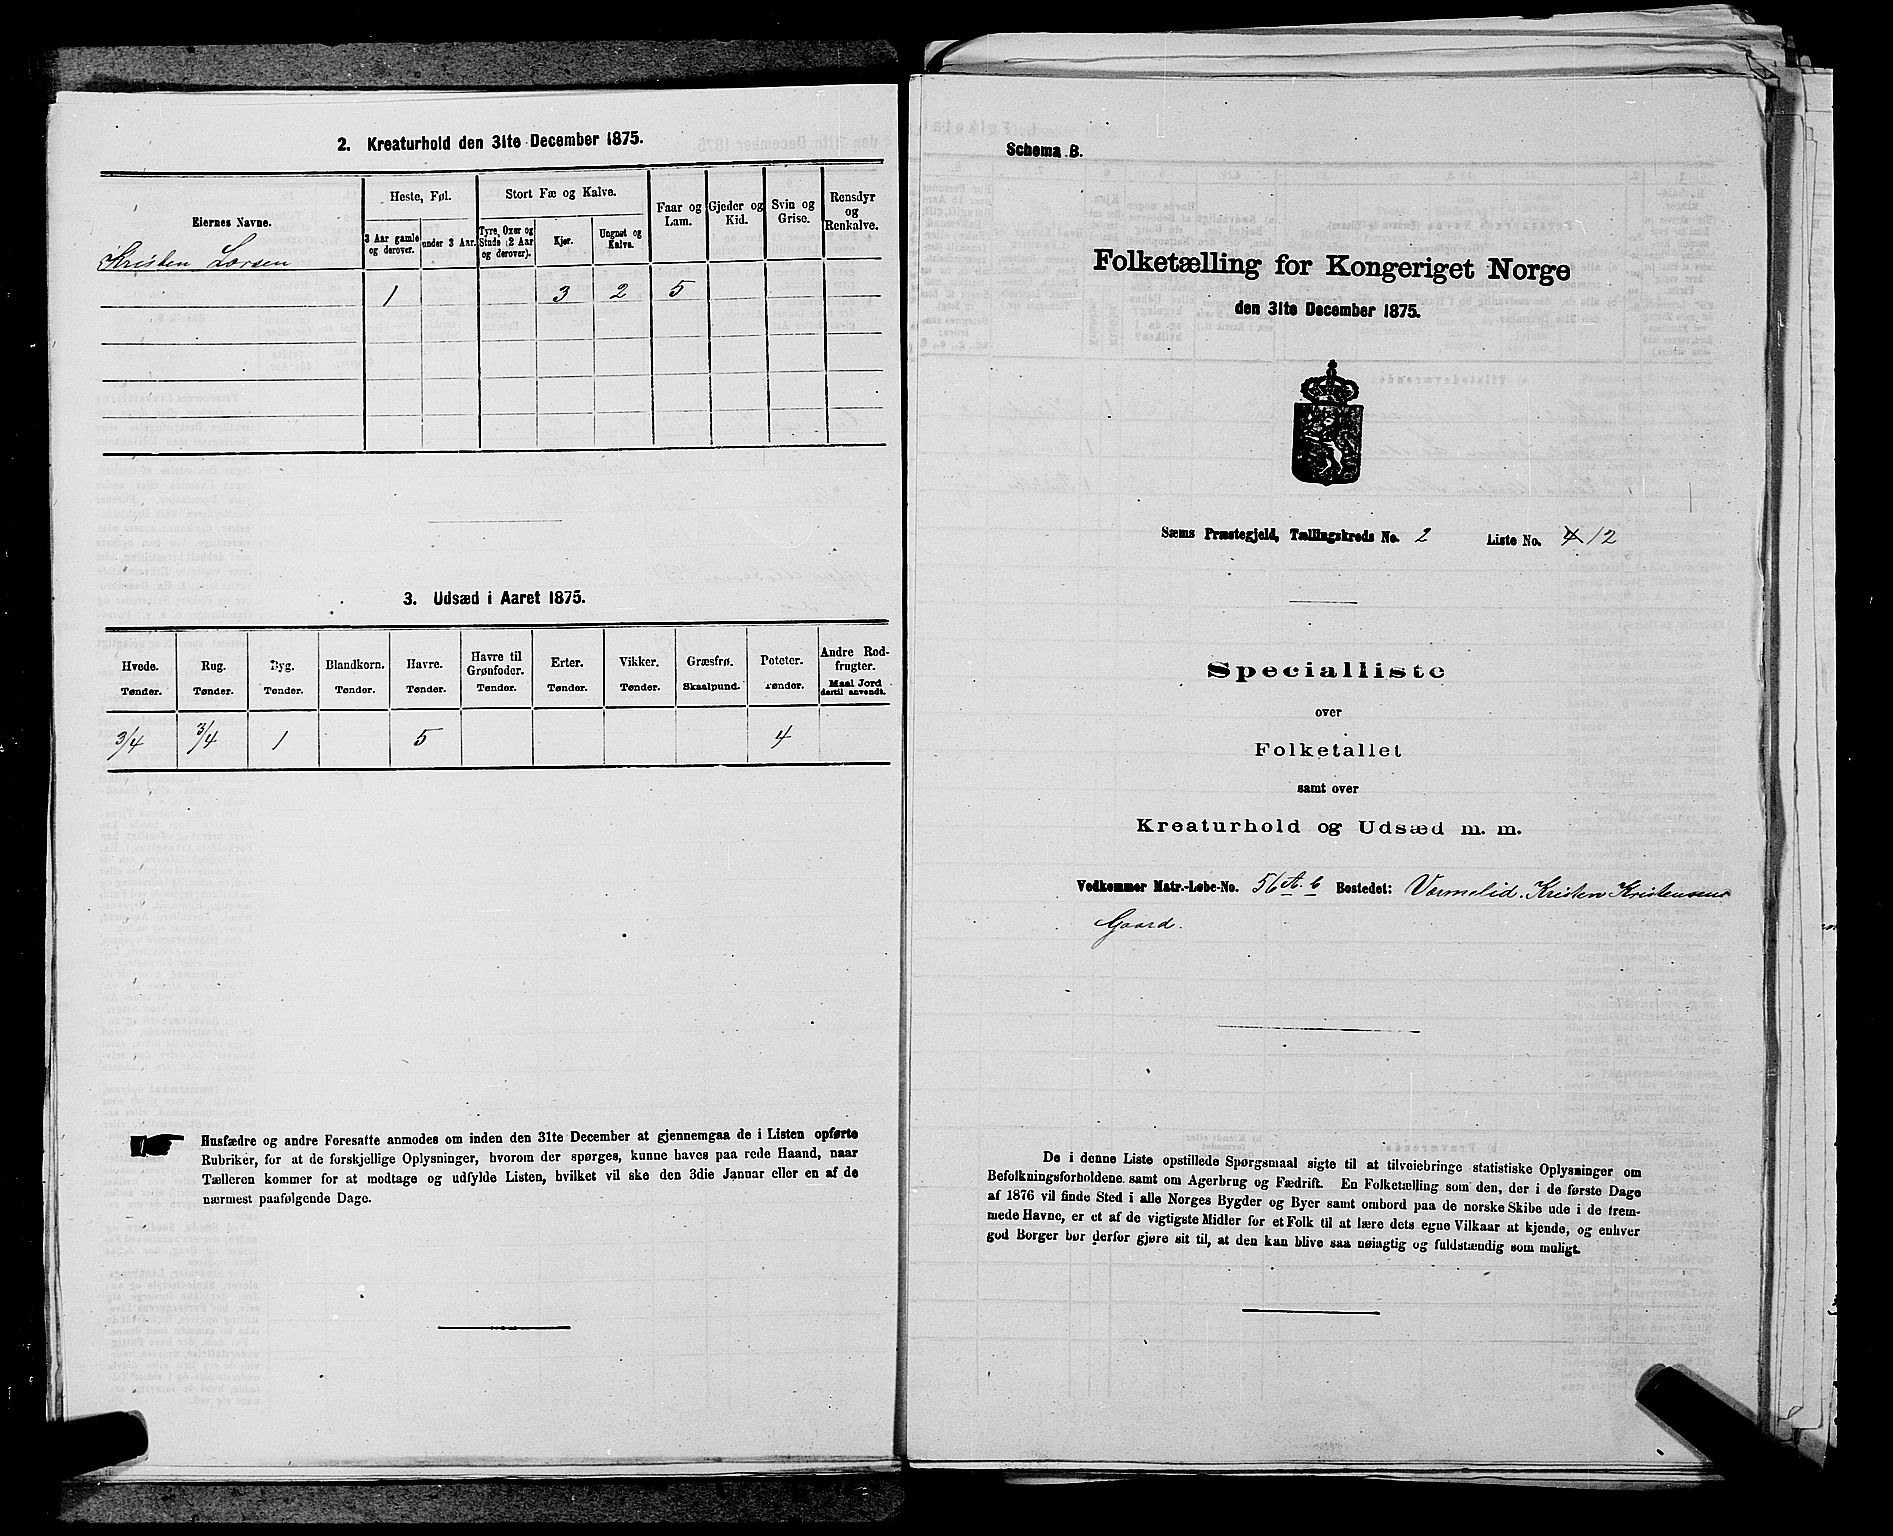 2. Kreaturhold den 31te December 1875.
Eiernes Navne.
Heste, Føl.
Stort Fæ og Kalve.
Faar og Lam.
Gjeder og Kid.
Svin og Grise.
Rensdyr og Renkalve.
3 Aar gamle og derover.
under 3 Aar.
Tyre, Oxer og Stude (2 Aar og derover).
Kjør.
Ungnøt og Kalve.
Kristen Larsen
1 3 2 5
3. Udsæd i Aaret 1875.
Hvede. Rug. Byg. Blandkorn. Havre. Havre til Grønfoder. Erter. Vikker. Græsfrø. Poteter. Andre Rodfrugter.
Tønder. Tønder. Tønder. Tønder. Tønder. Tønder. Tønder. Tønder. Skaalpund. Tønder. Maal Jord dertil anvendt.
3/4 3/4 1 5 4
Husfædre og andre Foresatte anmodes om inden den 31te December at gjennemgaa de i Listen opførte
Rubriker, for at de forskjellige Oplysninger, hvorom der spørges, kunne haves paa rede Haand, naar
Tælleren kommer for at modtage og udfylde Listen, hvilket vil ske den 3die Januar eller en af de
nærmest paafølgende Dage.
Schema B.
Folketælling for Kongeriget Norge
den 31te December 1875.
Sæms Præstegjeld, Tællingskreds No. 2 Liste No. 4 12
Specialliste
over
Folketallet
samt over
Kreaturhold og Udsæd m. m.
Vedkommer Matr.-Løbe-No. 56 A. b Bostedet: Varmelid. Kristen Kristensens
Gaard.
De i denne Liste opstillede Spørgsmaal sigte til at tilveiebringe statistiske Oplysninger om
Befolkningsforholdene samt om Agerbrug og Fædrift. En Folketælling som den, der i de første Dage
af 1876 vil finde Sted i alle Norges Bygder og Byer samt ombord paa de norske Skibe ude i de frem-
mede Havne, er et af de vigtigste Midler for et Folk til at lære dets egne Vilkaar at kjende, og enhver
god Borger bør derfor gjøre sit til, at den kan blive saa nøiagtig og fuldstændig som muligt.